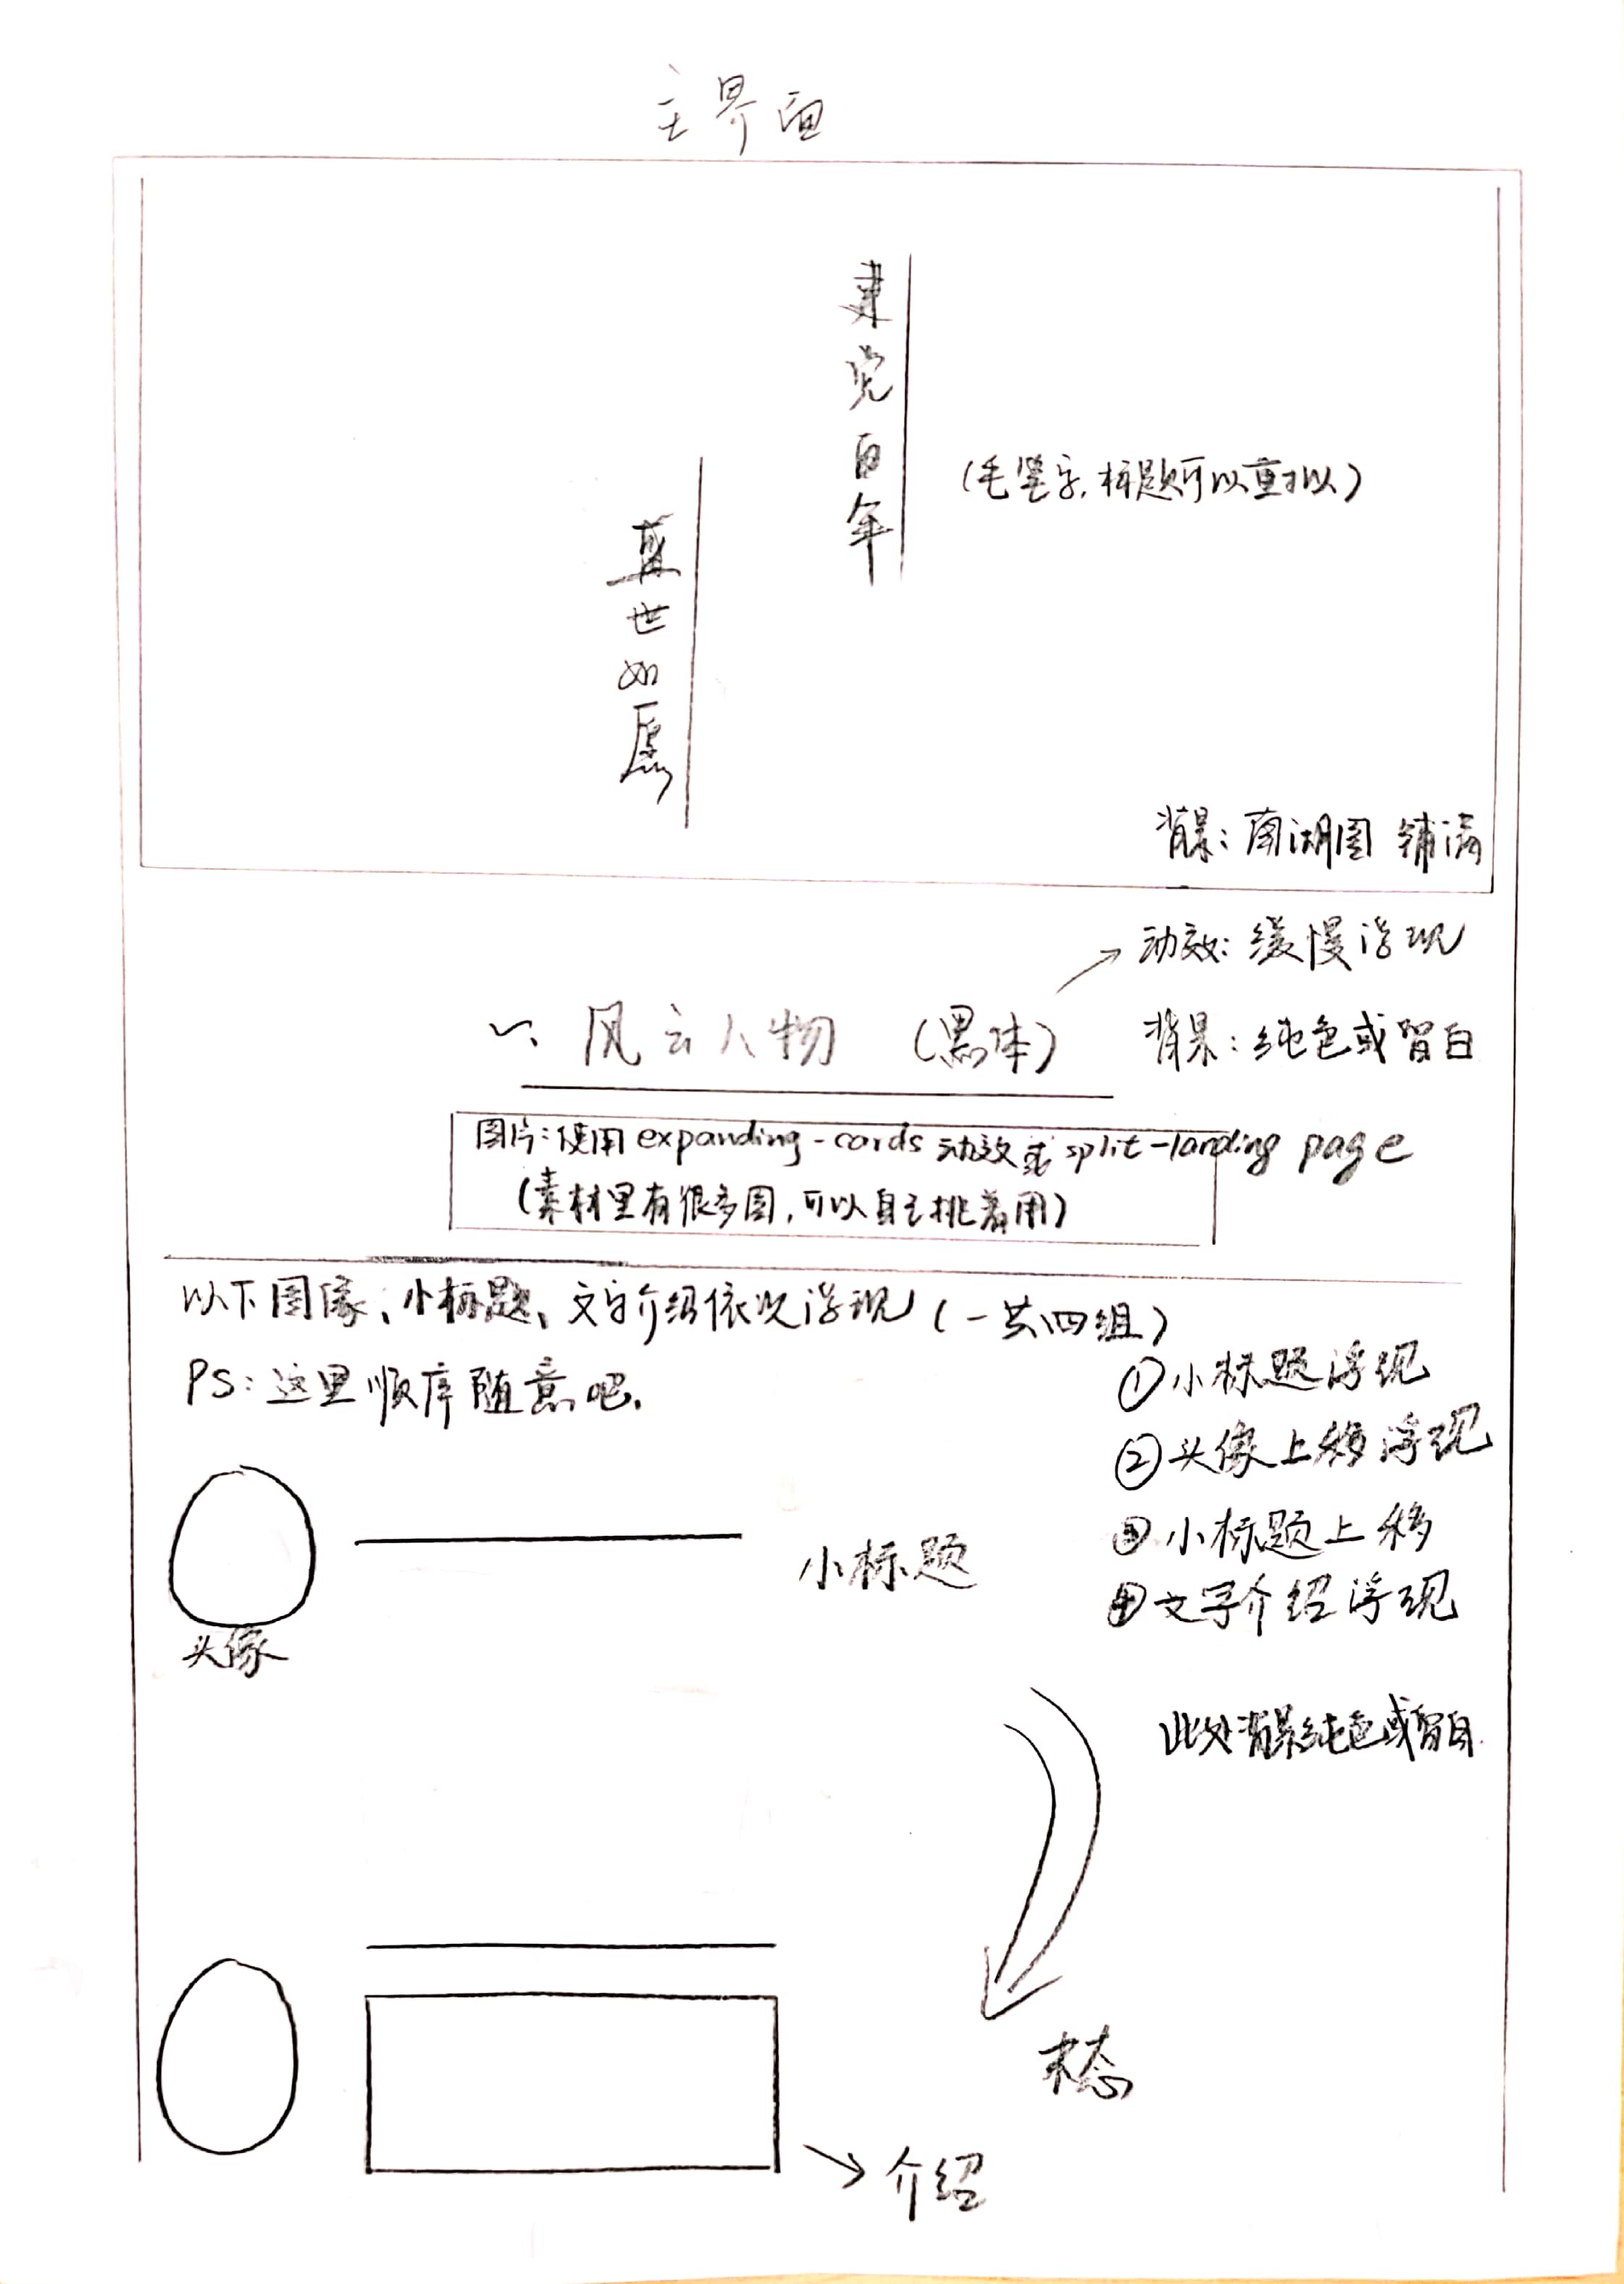 主界面
建党百年
(毛笔字,标题可以重拟)
盛世如愿
背景:南湖图 铺满
动效:缓慢浮现
一、风云人物 (黑体)
背景:纯色或留白
图片:使用expanding-cards动效或split-landing page
(素材里有很多图,可以自主挑着用)
以下图像、小标题、文字介绍依次浮现(一共四组)
PS:这里顺序随意吧.
①小标题浮现
②头像上移浮现
③小标题上移
④文字介绍浮现
小标题
头像
此处背景纯色或留白.
末态
介绍